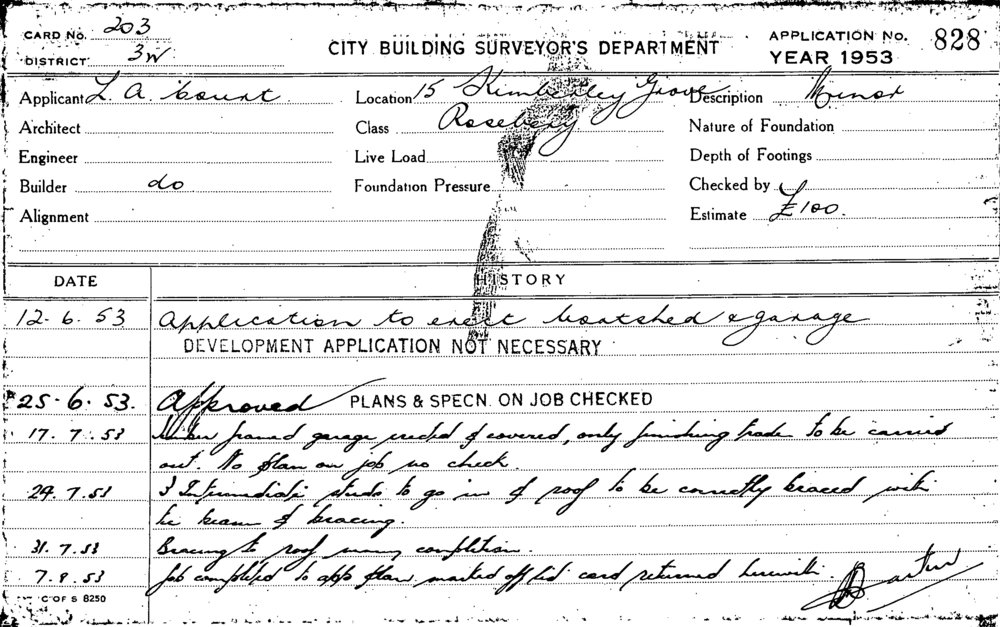 CARD No. 203
CITY BUILDING SURVEYOR'S DEPARTMENT
APPLICATION No. 828
DISTRICT 3W
YEAR 1953
Applicant L. A. Court Location 15 Kimberley Grove Description Minor
Architect Class Rosebery Nature of Foundation
Engineer Live Load Depth of Footings
Builder do Foundation Pressure Checked by
Alignment Estimate £100.
DATE HISTORY
12.6.53 Application to erect boatshed & garage
DEVELOPMENT APPLICATION NOT NECESSARY
25.6.53. Approved PLANS & SPECN. ON JOB CHECKED
17.7.53 Timber framed garage erected & covered, only finishing trades to be carried
out. No plan on job no check.
24.7.53 3 Intermediate studs to go in & roof to be correctly braced with
tie beam & bracing.
31.7.53 Bracing to roof nearing completion.
7.8.53 Job completed to app plan marked off lid card returned herewith.
C OF S 8250